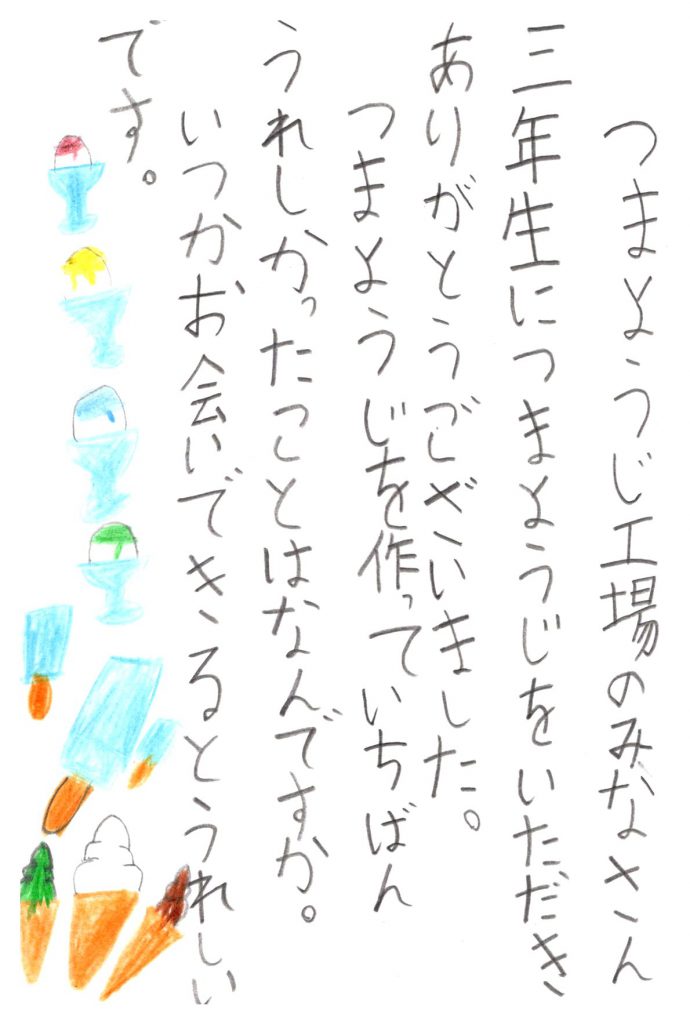 つまようじ工場のみなさん
三年生につまようじをいただき
ありがとうございました。
つまようじを作っていちばん
うれしかったことはなんですか。
いつかお会いできるとうれしい
です。